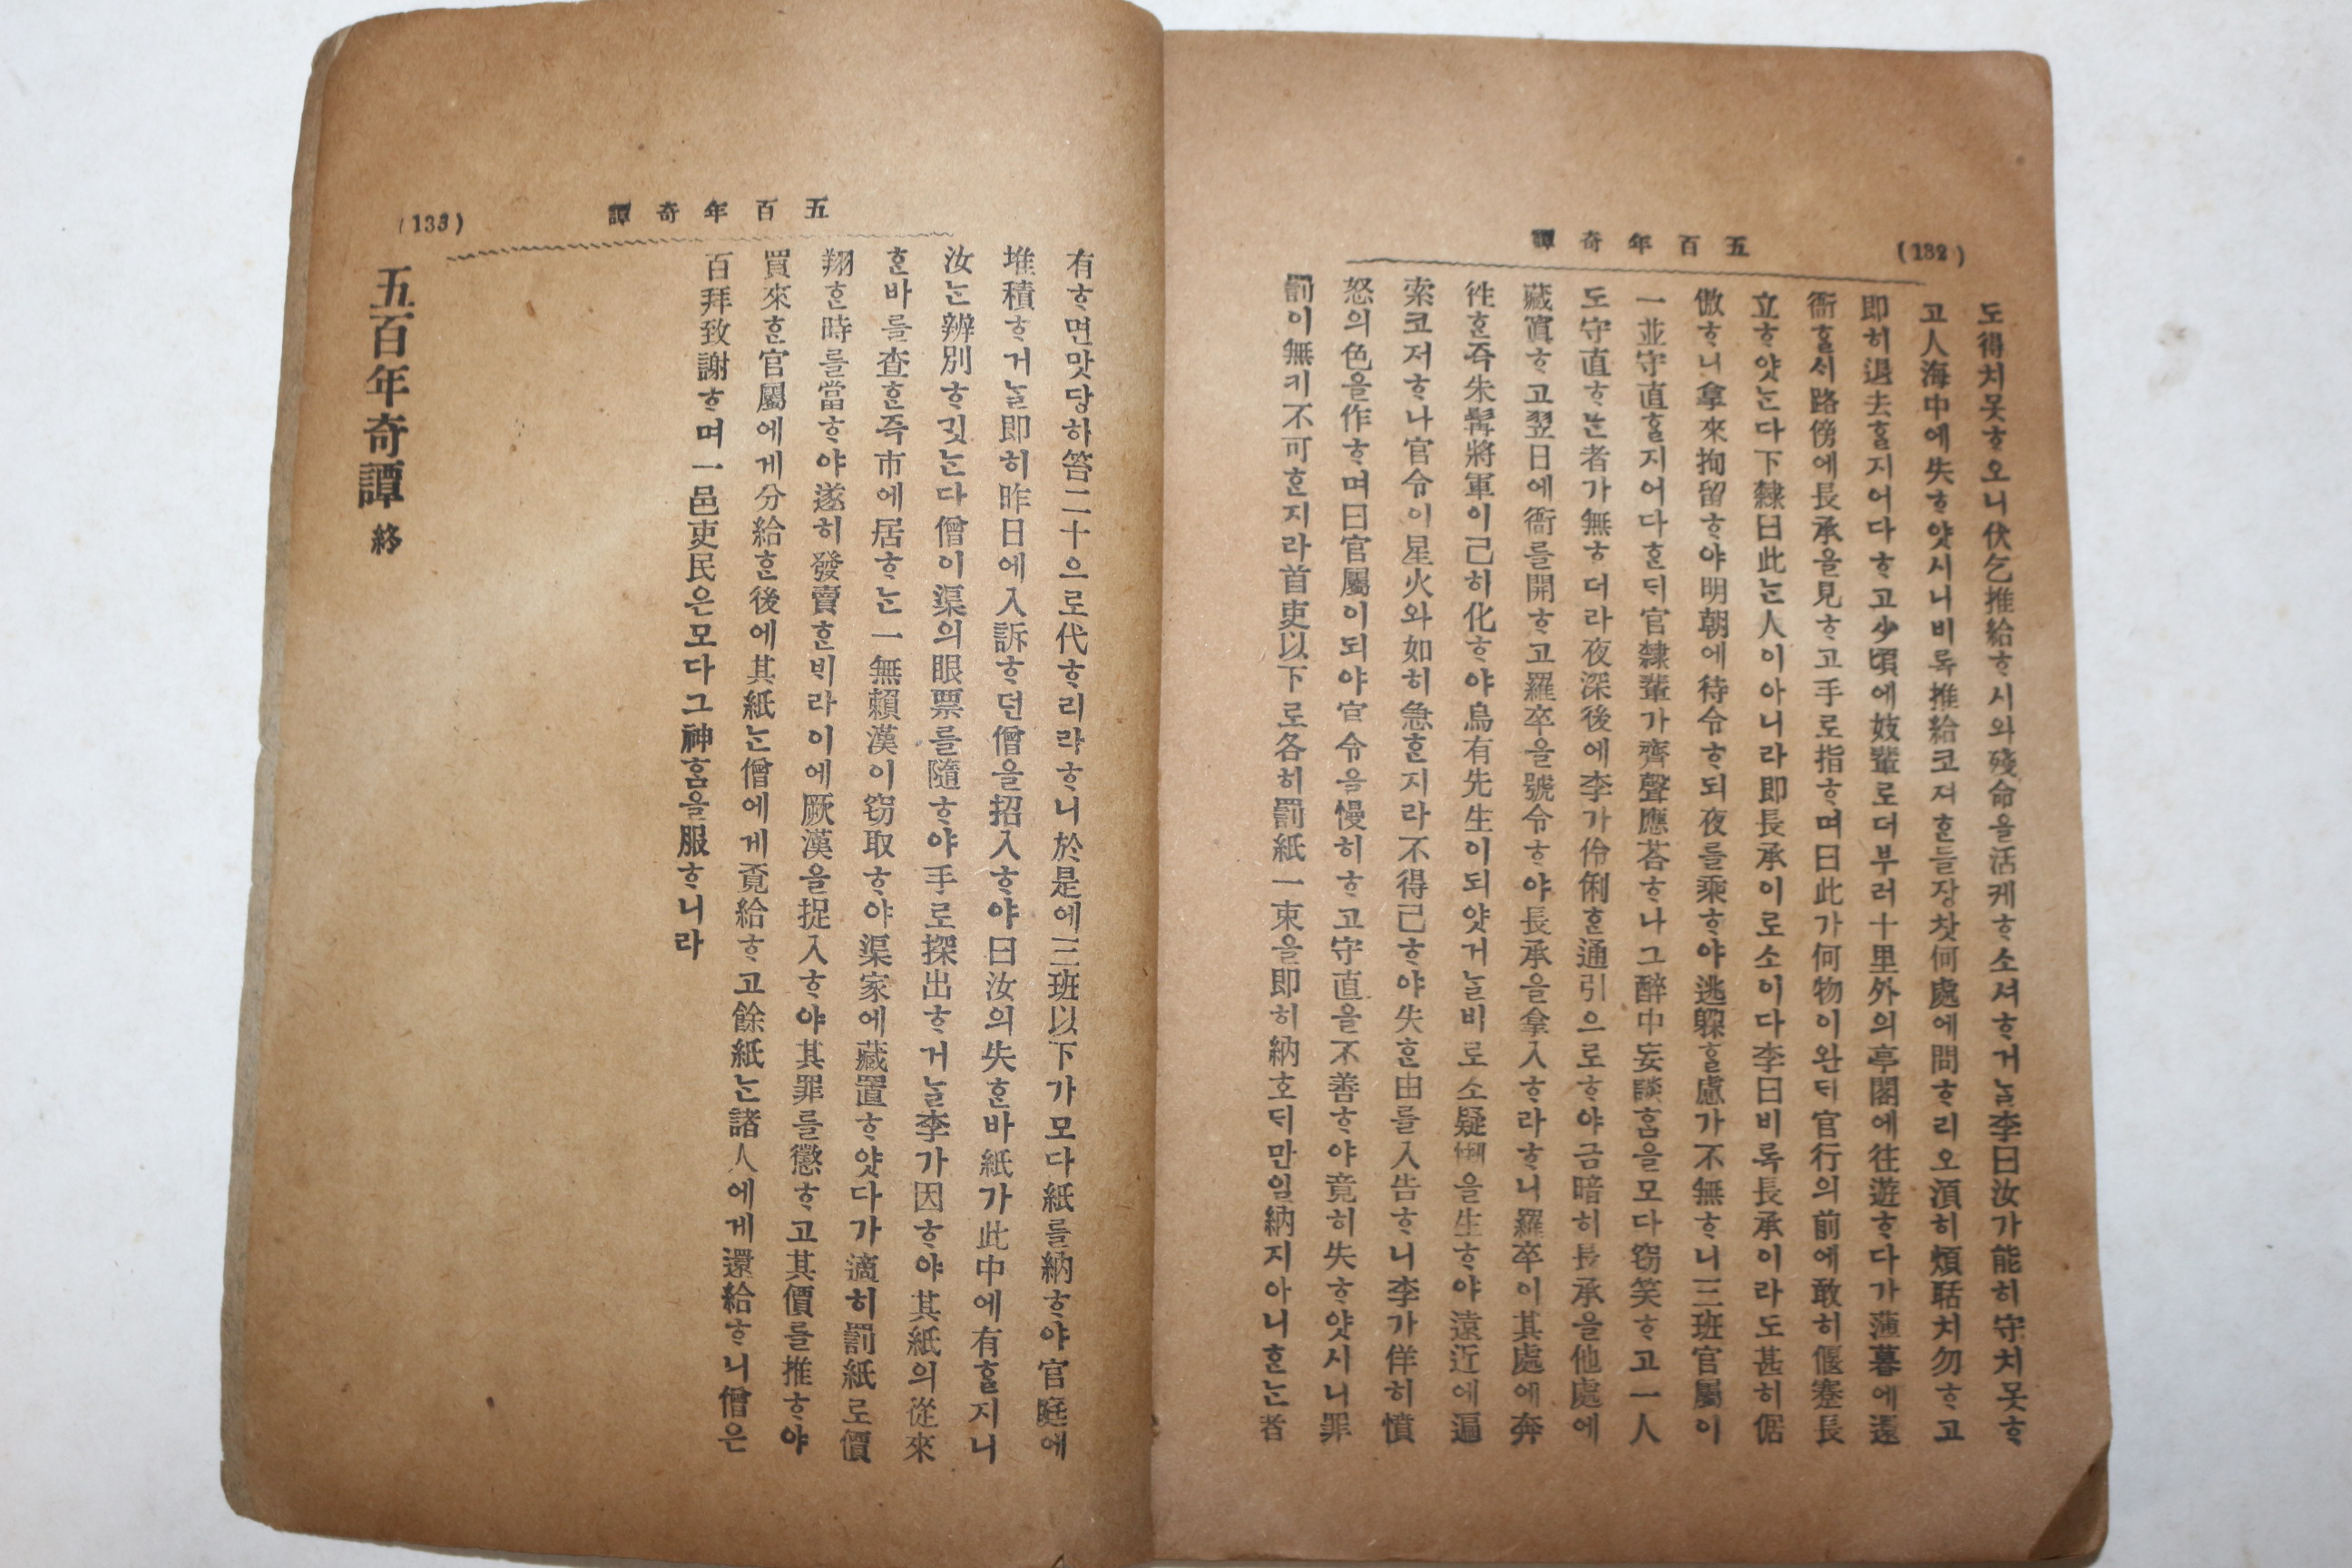 (132)
五百年奇譚
도得치못ᄒᆞ오니伏乞推給ᄒᆞ시와殘命을活케ᄒᆞ소셔ᄒᆞ거ᄂᆞᆯ李曰汝가能히守치못ᄒᆞ
고人海中에失ᄒᆞ얏시니비록推給코져ᄒᆞᆫ들장찻何處에問ᄒᆞ리오湏히煩聒치勿ᄒᆞ고
即히退去ᄒᆞᆯ지어다ᄒᆞ고少頃에妓輩로더부러十里外의亭閣에往遊ᄒᆞ다가薄暮에還
衙ᄒᆞᆯᄉᆡ路傍에長承을見ᄒᆞ고手로指ᄒᆞ며曰此가何物이완ᄃᆡ官行의前에敢히偃蹇長
立ᄒᆞ얏ᄂᆞᆫ다下隸曰此ᄂᆞᆫ人이아니라即長承이로소이다李曰비록長承이라도甚히倨
傲ᄒᆞ니拿來拘留ᄒᆞ야明朝에待令ᄒᆞ되夜를乘ᄒᆞ야逃躱ᄒᆞᆯ慮가不無ᄒᆞ니三班官屬이
一並守直ᄒᆞᆯ지어다ᄒᆞᆫᄃᆡ官隸輩가齊聲應答ᄒᆞ나그醉中妄談ᄒᆞᆷ을모다窃笑ᄒᆞ고一人
도守直ᄒᆞᄂᆞᆫ者가無ᄒᆞ더라夜深後에李가伶俐ᄒᆞᆫ通引으로ᄒᆞ야금暗히長承을他處에
藏寘ᄒᆞ고翌日에衙를開ᄒᆞ고羅卒을號令ᄒᆞ야長承을拿入ᄒᆞ라ᄒᆞ니羅卒이其處에奔
徃ᄒᆞᆫ즉朱髥將軍이己히化ᄒᆞ야烏有先生이되얏거ᄂᆞᆯ비로소疑㥘을生ᄒᆞ야遠近에遍
索코저ᄒᆞ나官令이星火와如히急ᄒᆞᆫ지라不得己ᄒᆞ야失ᄒᆞᆫ由를入告ᄒᆞ니李가佯히憤
怒의色을作ᄒᆞ며曰官屬이되야官令을慢히ᄒᆞ고守直을不善ᄒᆞ야竟히失ᄒᆞ얏시니罪
罰이無키不可ᄒᆞᆫ지라首吏以下로各히罰紙一束을即히納호ᄃᆡ만일納지아니ᄒᆞᄂᆞᆫ者
五百年奇譚
(133)
有ᄒᆞ면맛당하笞二十으로代ᄒᆞ리라ᄒᆞ니於是에三班以下가모다紙를納ᄒᆞ야官庭에
堆積ᄒᆞ거ᄂᆞᆯ即히昨日에入訴ᄒᆞ던僧을招入ᄒᆞ야曰汝의失ᄒᆞᆫ바紙가此中에有ᄒᆞᆯ지니
汝ᄂᆞᆫ辨別ᄒᆞ깃ᄂᆞᆫ다僧이渠의眼票를隨ᄒᆞ야手로探出ᄒᆞ거ᄂᆞᆯ李가因ᄒᆞ야其紙의從來
ᄒᆞᆫ바를査ᄒᆞᆫ즉市에居ᄒᆞᄂᆞᆫ一無賴漢이窃取ᄒᆞ야渠家에藏置ᄒᆞ얏다가適히罰紙로價
翔ᄒᆞᆫ時를當ᄒᆞ야遂히發賣ᄒᆞᆫᄇᆡ라이에厥漢을捉入ᄒᆞ야其罪를懲ᄒᆞ고其價를推ᄒᆞ야
買來ᄒᆞᆫ官屬에게分給ᄒᆞᆫ後에其紙ᄂᆞᆫ僧에게覔給ᄒᆞ고餘紙ᄂᆞᆫ諸人에게還給ᄒᆞ니僧은
百拜致謝ᄒᆞ며一邑吏民은모다그神ᄒᆞᆷ을服ᄒᆞ니라
五百年奇譚 終